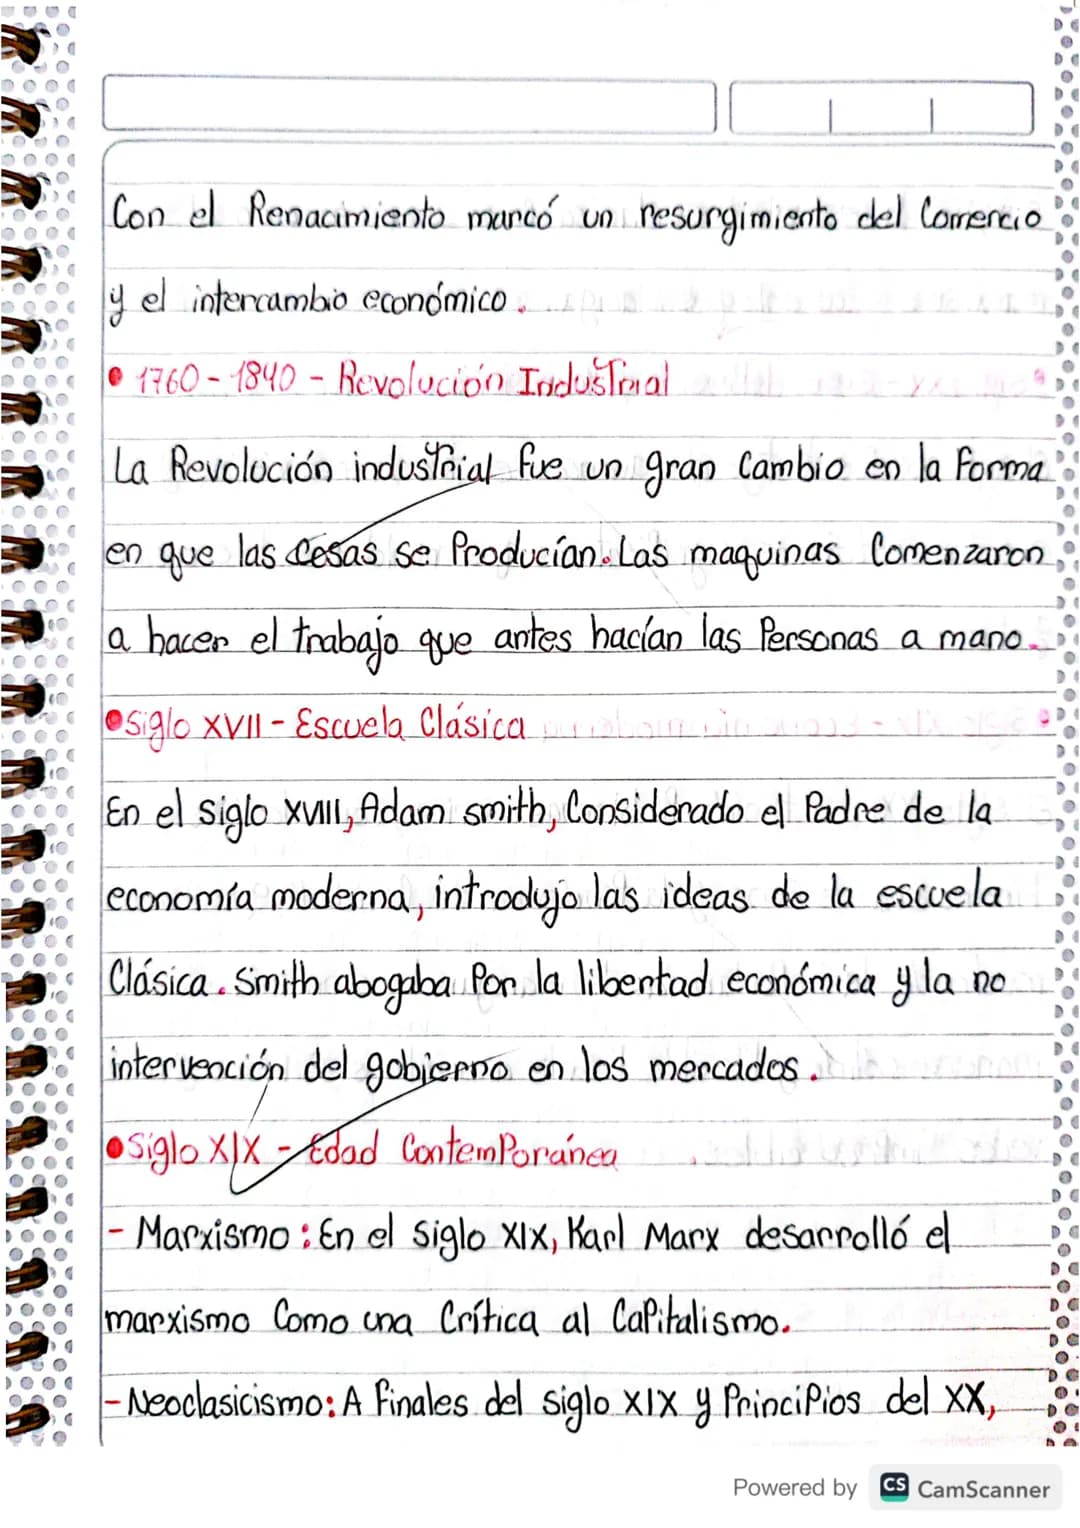 Con el Renacimiento marcó un resurgimiento del Comercio
y el intercambio económico.
• 1760 - 1840 - Revolución Industrial
La Revolución industrial fue un gran Cambio en la Forma
en que las Cosas se Producían. Las maquinas Comenzaron
a hacer el trabajo que antes hacían las Personas a mano.
• Siglo XVII - Escuela Clásica
En el siglo XVIII, Adam smith, Considerado el Padre de la
economía moderna, introdujo las ideas de la escuela
Clásica. Smith abogaba Por la libertad económica y la no
intervención del gobierno en los mercados.
• Siglo XIX - Edad Contemporánea
- Marxismo: En el Siglo XIX, Karl Marx desarrolló el
marxismo Como una Crítica al Capitalismo.
- Neoclasicismo: A Finales del siglo XIX y Principios del XX,
Powered by CS CamScanner